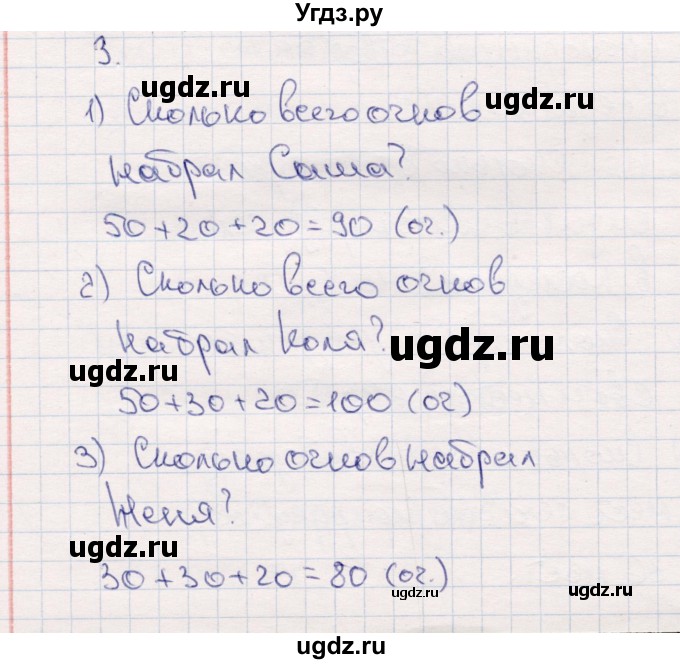 Угдз.ру
3.
ugdz.ru
1) Сколько всего очков
ugdz.ru
набрал Саша?
50+20+20=90 (оч.)
2) Сколько всего очков
набрал Коля?
ugdz.ru
ugdz.ru
50+30+20=100 (оч)
3) Сколько очков набрал
Женя?
ugdz.ru
30+30+20=80 (оч.)
ugdz.ru
ugdz.ru
ugdz.ru